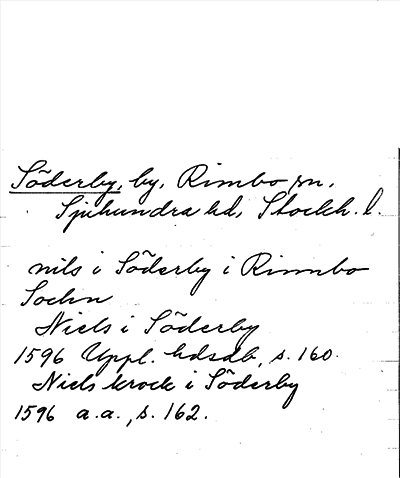 Söderby, by, Rimbo sn,
Sjuhundra hd, Stockh. l.
nils i Söderby i Rimmbo
Sochn
Niels i Söderby
1596 Uppl. hdsdb, s. 160.
Niels krock i Söderby
1596 a.a., s. 162.